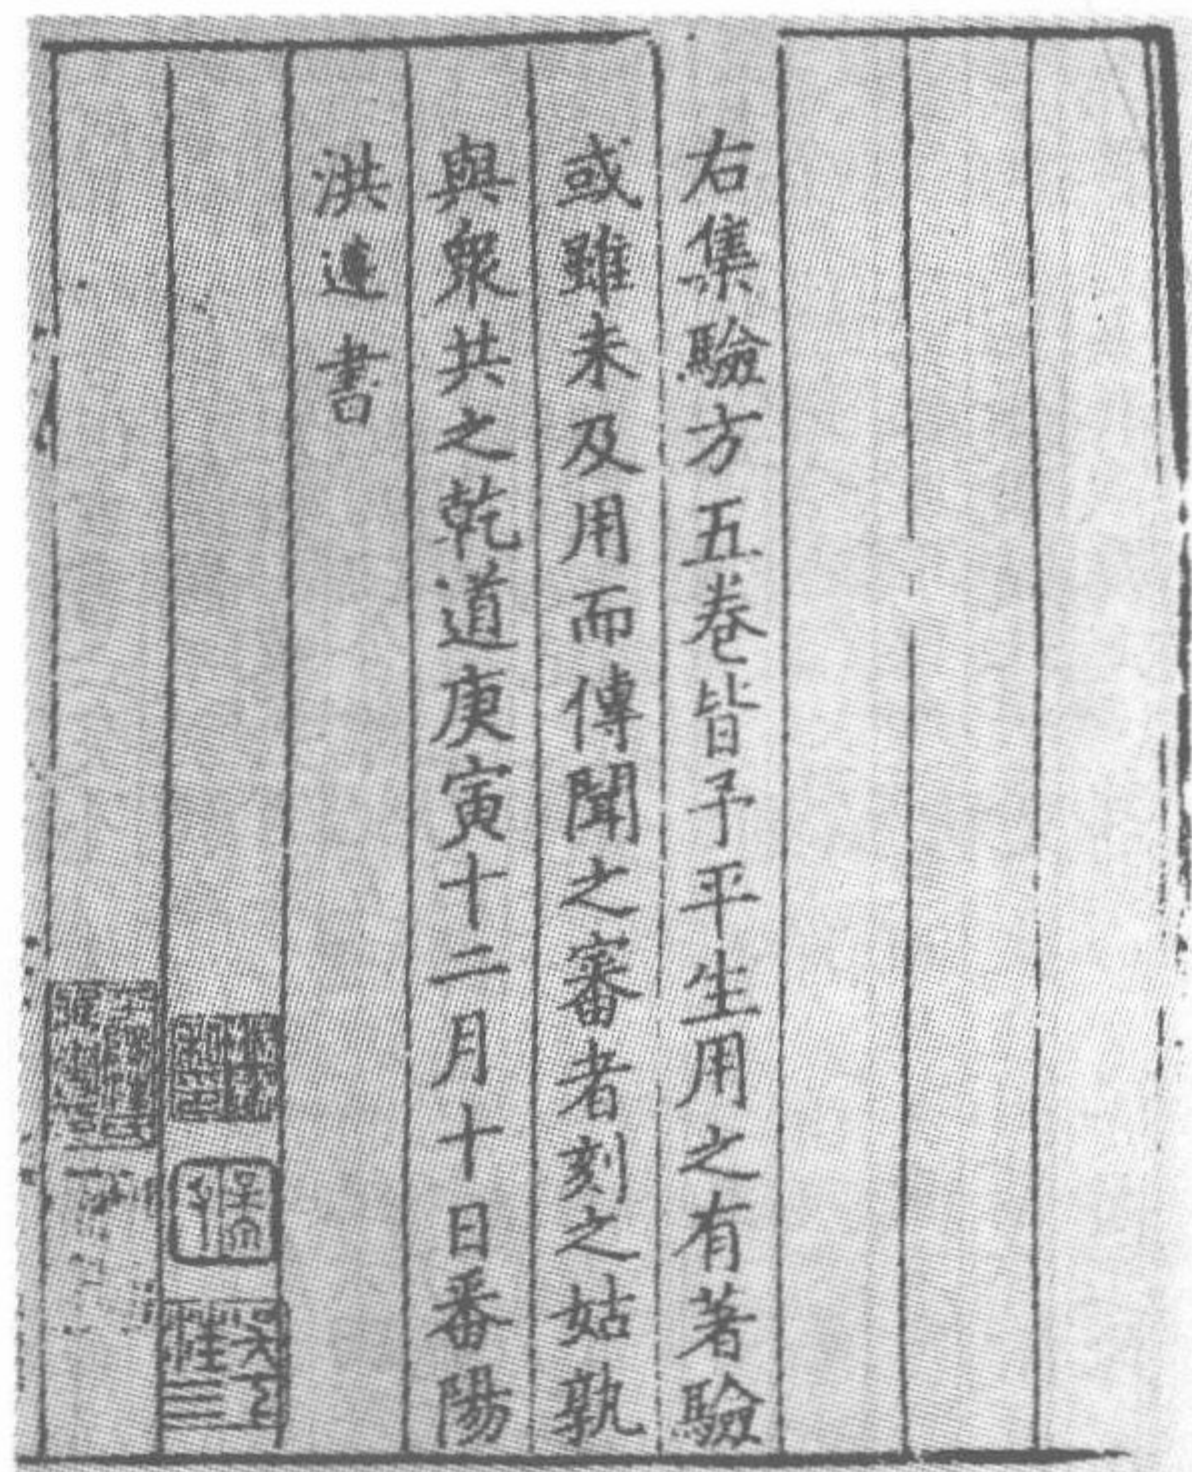 右集驗方五卷皆予平生用之有著驗
或雖未及用而傳聞之審者刻之姑孰
與衆共之乾道庚寅十二月十日番陽
洪遵書